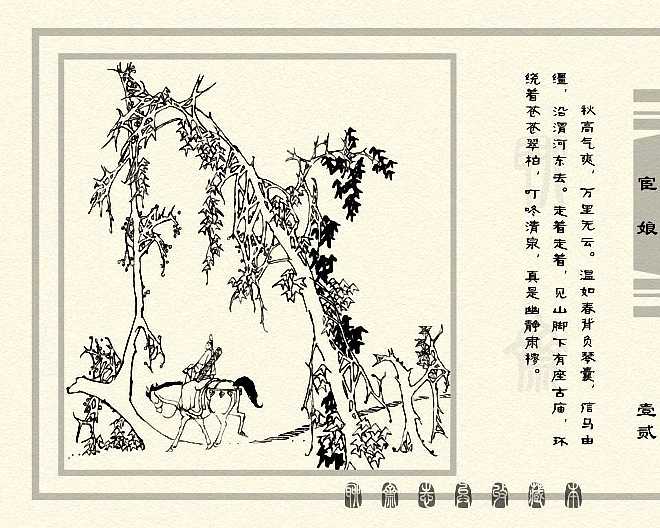 宦娘
壹贰
秋高气爽，万里无云。温如春背负琴囊，信马由
缰，沿渭河东去。走着走着，见山脚下有座古庙，环
绕着苍苍翠柏，叮咚清泉，真是幽静肃穆。